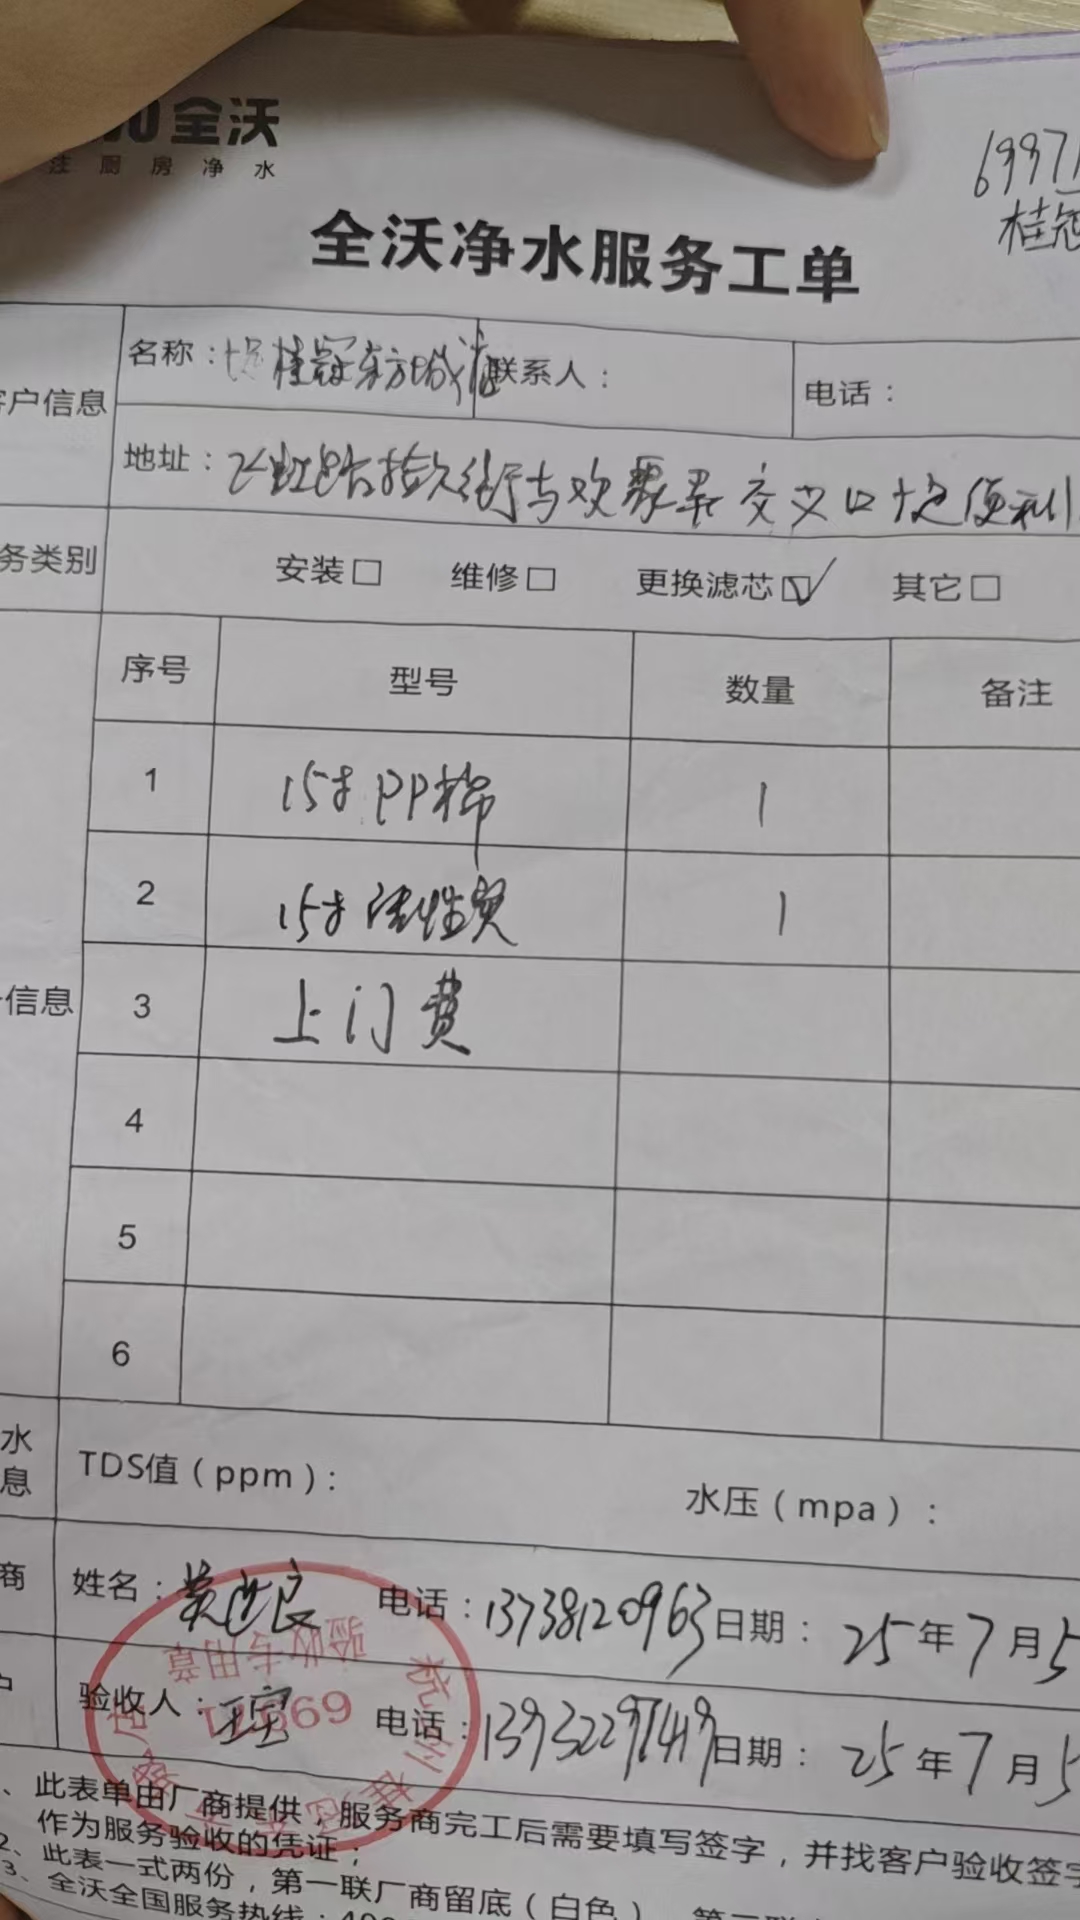 全沃
注厨房净水
6997
桂冠
全沃净水服务工单
客户信息
名称：桂冠东方城 联系人： 电话：
地址：交叉口十足便利
务类别 安装□ 维修□ 更换滤芯☑ 其它□
序号 型号 数量 备注
1 15寸PP棉 1
2 15寸活性炭 1
信息 3 上门费
4
5
6
水
息
TDS值（ppm）： 水压（mpa）：
商 姓名： 电话：13738120963 日期：25年7月5
户 验收人： 电话： 日期：25年7月5
验收专用章
、此表单由厂商提供，服务商完工后需要填写签字，并找客户验收签字
作为服务验收的凭证；
2、此表一式两份，第一联厂商留底（白色）
3、全沃全国服务热线：400